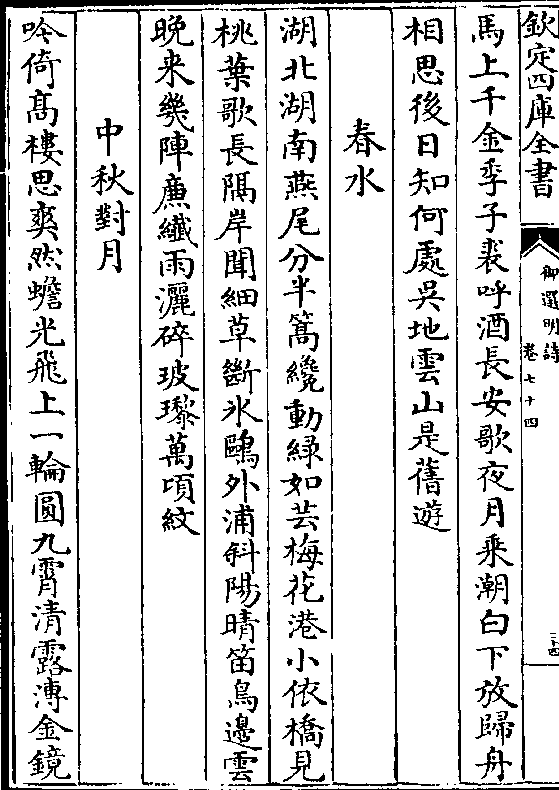 欽定四庫全書
御選明詩
卷七十四
三十四
馬上千金季子裘呼酒長安歌夜月乘潮白下放歸舟
相思後日知何處吳地雲山是舊遊
春水
湖北湖南燕尾分半篙纔動綠如芸梅花港小依橋見
桃葉歌長隔岸聞細草斷氷鷗外浦斜陽晴笛鳥邊雲
晚來幾陣廉纖雨灑碎玻瓈萬頃紋
中秋對月
吟倚髙樓思爽然蟾光飛上一輪圓九霄清露漙金鏡